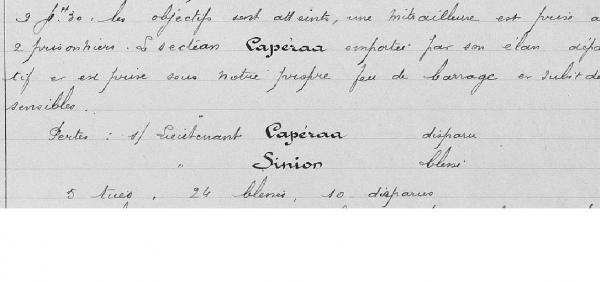 2 h 30. les objectifs sont atteints, une mitrailleuse est prise a
2 prisonniers. La section Lapéraa emportée par son élan dépa
tif et est prise sous notre propre feu de barrage et subit de
sensibles.
Pertes : s/ Lieutenant Lapéraa disparu
" Sinion blessé
5 tués, 24 blessés, 10 disparus